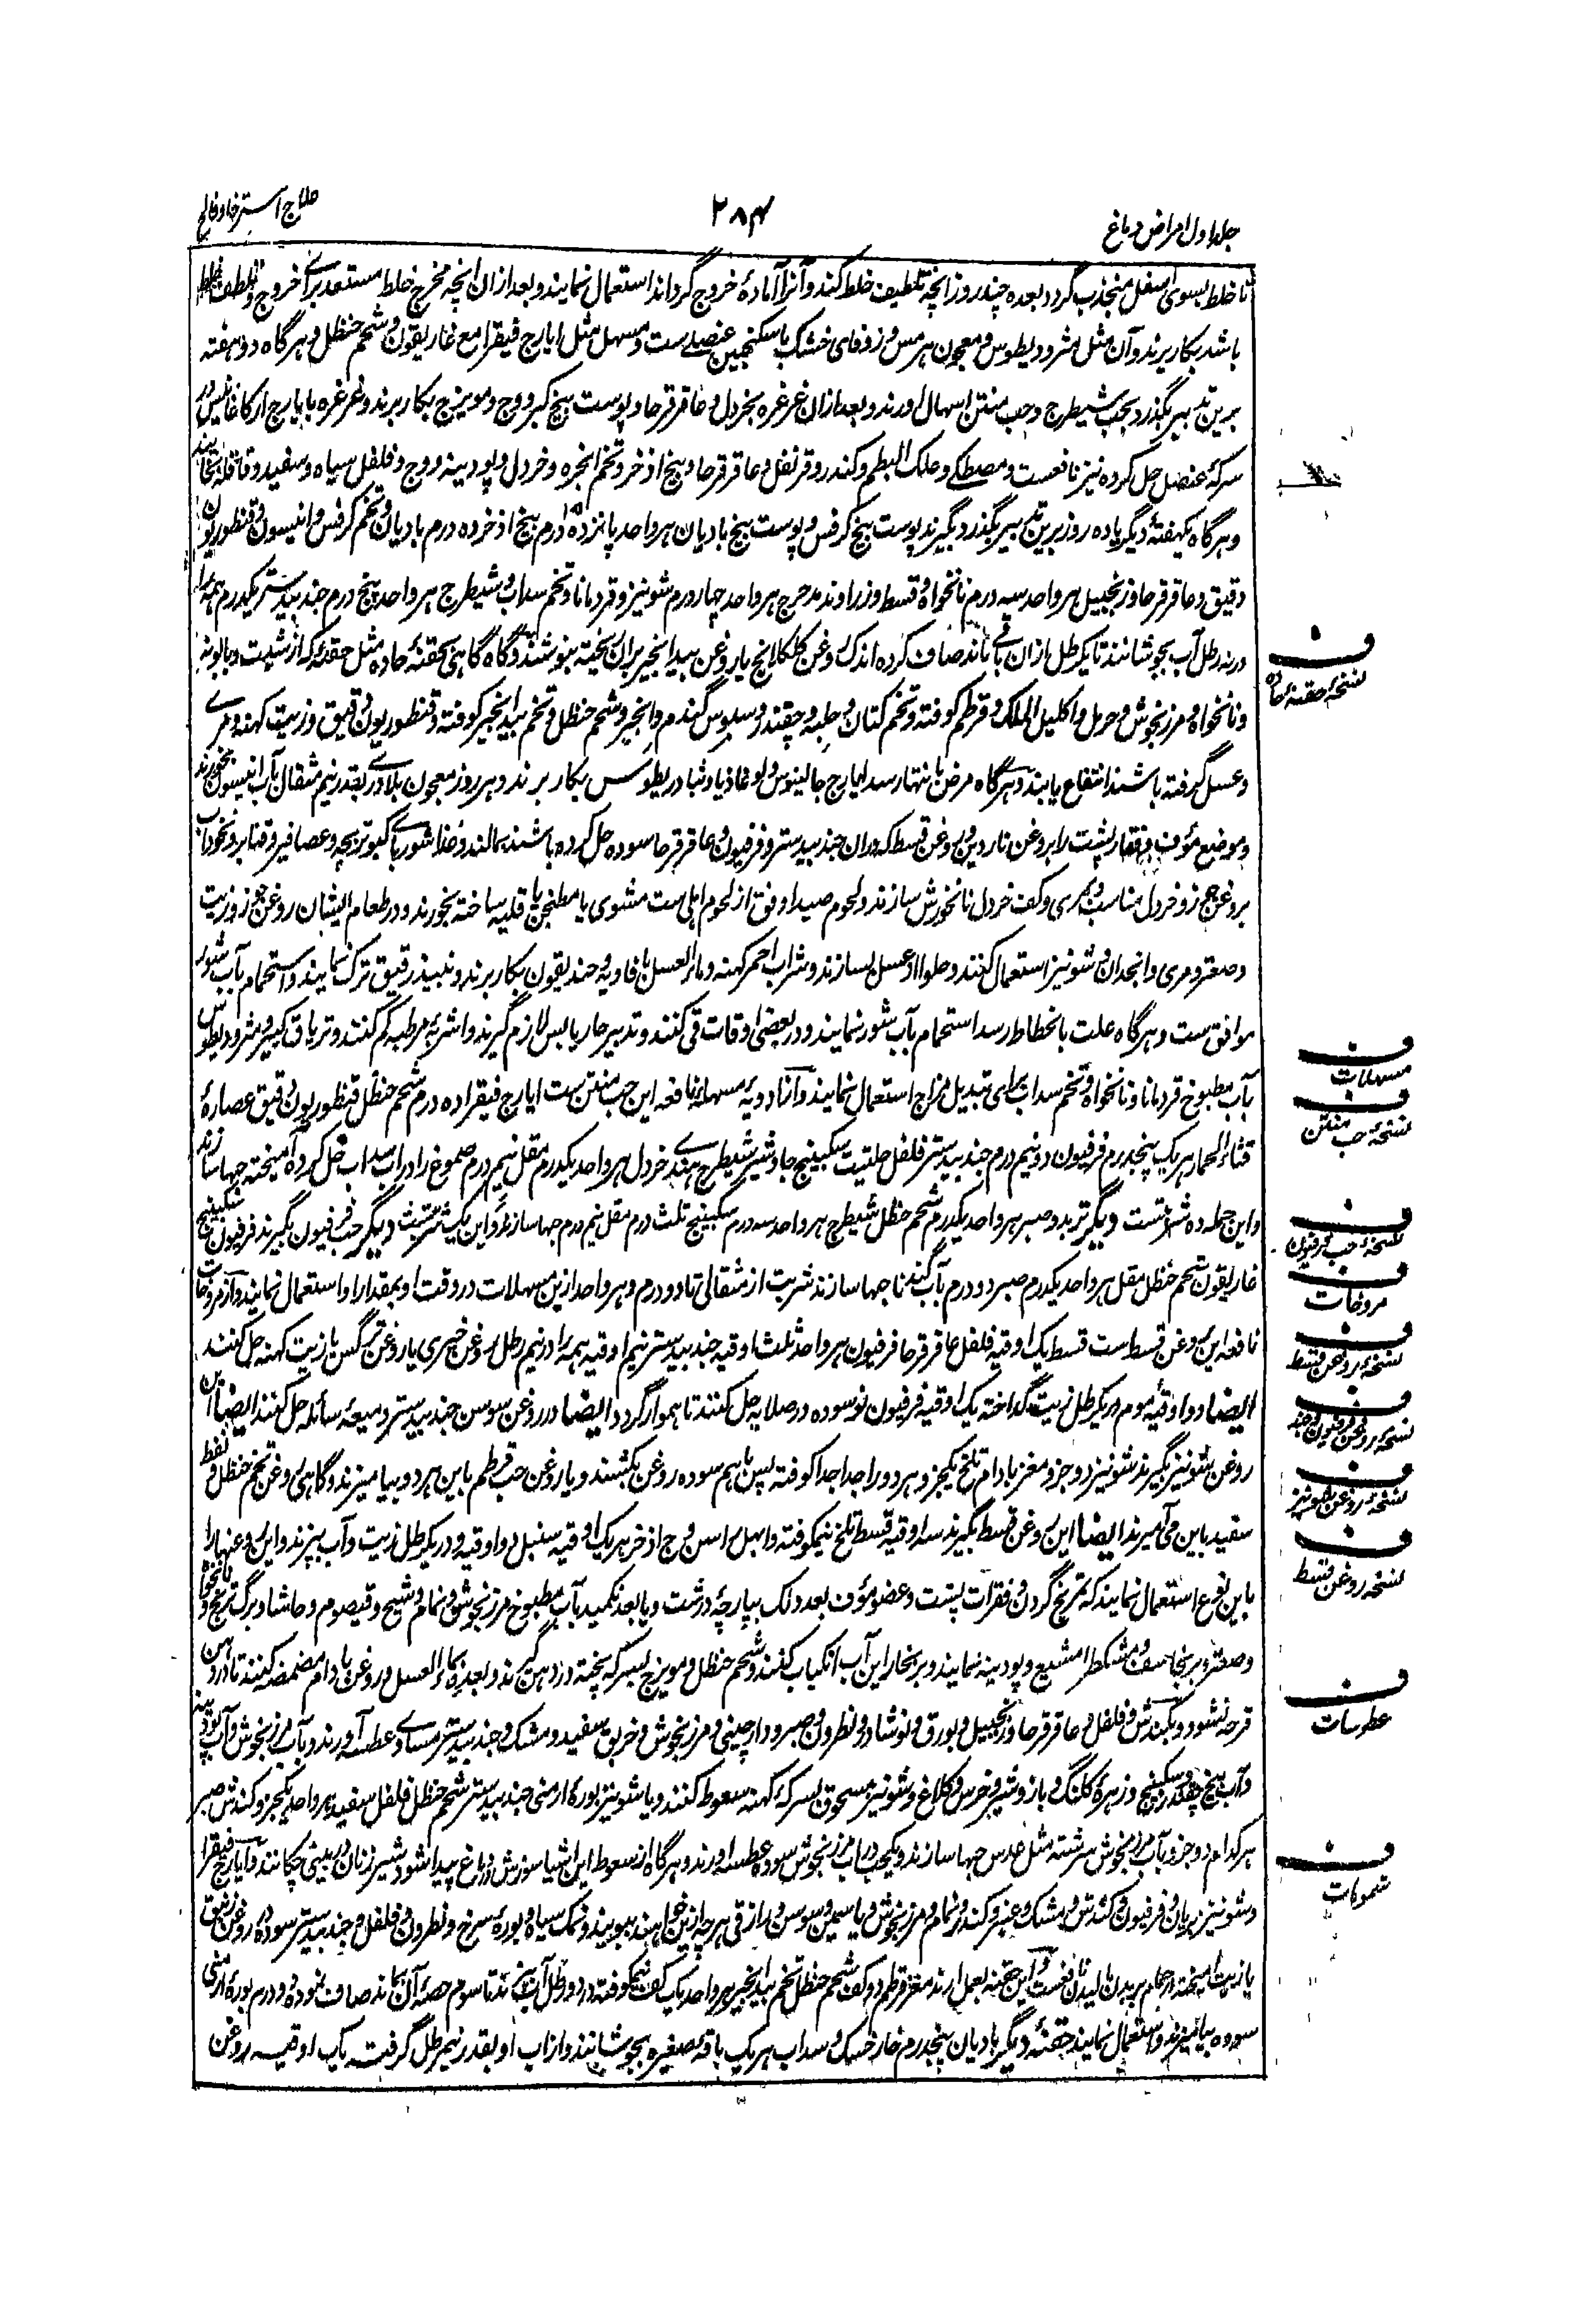 جلد اول امراض دماغ
۲۸۴
علاج استرخا و فالج
تا خلط بسوی اسفل منجذب گردد بعده چند روز انچه تلطیف خلط کند و آنرا آمادهٔ خروج گرداند استعمال نمایند و بعد ازان انچه مخرج خلط مستعد برای خروج و ملطف خلط
باشد بکار برند و آن مثل مثرودیطوس و معجون هرمس و زوفای خشک با سکنجبین عنصلی ست و مسهل مثل ایارج فیقرا مع غاریقون و شحم حنظل و هرگاه دو هفته
برین تدبیر بگذرد بحب شیطرج و حب منتن اسهال آورند و بعد ازان غرغره بخردل و عاقرقرحا و پوست بیخ کبر و وج و مویزج بکار برند و غرغره بایارج ارکاغانیس در
سرکهٔ عنصل حل کرده نیز نافعست و مصطکی و علک البطم و کندر و قرنفل و عاقرقرحا و بیخ اذخر و تخم انجره و خردل و پودینه و وج و فلفل سیاه و سفید و قاقله بخایند
و هرگاه یکهفتهٔ دیگر یا ده روز برین تدبیر بگذرد بگیرند پوست بیخ کرفس و پوست بیخ بادیان هر واحد پانزده درم بیخ اذخر ده درم بادیان و تخم کرفس و انیسون و قنطوریون
دقیق و عاقرقرحا و زنجبیل هر واحد سه درم نانخواه و قسط و زراوند مدحرج هر واحد چهار درم شونیز و قردمانا و تخم سداب و شیطرج هر واحد پنج درم جندبیدستر یکدرم همه را
در نه رطل آب بجوشانند تا یکرطل ازان باقی ماند صاف کرده اندک روغن کلکلانج یا روغن بیدانجیر بران ریخته بنوشند و گاه گاهی بحقنهٔ حاده مثل حقنه که از شبت و بابونه
و نانخواه و مرزنجوش و حرمل و اکلیل الملک و قرطم کوفته و تخم کتان و حلبه و چقندر و سبوس گندم و انجیر و شحم حنظل و تخم بیدانجیر کوفته و قنطوریون دقیق و زیت کهنه و مری
و عسل گرفته باشند انتفاع یابند و هرگاه مرض بانتها رسد ایارج جالینوس و لوغاذیا و ثیادریطوس بکار برند و هر روز معجون بلادری بقدر نیم مثقال بآب انیسون بخورند
و موضع مؤف و فقار پشت را بروغن ناردین و روغن قسط که دران جندبیدستر و فرفیون و عاقرقرحا سوده حل کرده باشند بمالند و غذا شوربای کبوتر بچه و عصافیر و قنابر و نخوداب
بروغن جوز و خردل مناسب و مری و کف خردل نانخورش سازند و لحوم صید اوفق از لحوم اهلی ست مشوی یا مطنجن یا قلیه ساخته بخورند و در طعام ایشان روغن جوز و زیت
و صعتر و مری و انجدان و شونیز استعمال کنند و حلوا از عسل بسازند و شراب احمر کهنه و ماء العسل بافاویه و خندیقون بکار برند و نبیذ رقیق ترک نمایند و استحمام بآب شور
موافق ست و هرگاه علت بانحطاط رسد استحمام بآب شور نمایند و در بعضی اوقات قی کنند و تدبیر حار یابس لازم گیرند و اشربهٔ مرطبه کم کنند و تریاق کبیر و مثرودیطوس
بآب مطبوخ قردمانا و نانخواه و تخم سداب برای تبدیل مزاج استعمال نمایند و از ادویهٔ مسهلهٔ نافعه این حب منتن ست ایارج فیقرا ده درم شحم حنظل قنطوریون دقیق عصارهٔ
قثاء الحمار هر یک پنجدرم فرفیون دو نیم درم جندبیدستر فلفل حلتیت سکبینج جاوشیر شیطرج هندی خردل هر واحد یکدرم مقل نیم درم صموغ را در آب سداب حل کرده آمیخته حبها سازند
و این جمله ده شربت ست دیگر تربد و صبر هر واحد یکدرم شحم حنظل شیطرج هر واحد سه درم سکبینج ثلث درم مقل نیم درم حبها سازند و این یک شربتست دیگر حب فرفیون بگیرند فرفیون سکبینج
غاریقون شحم حنظل مقل هر واحد یکدرم صبر دو درم بآب گندنا حبها سازند شربت از مثقالی تا دو درم و هر واحد ازین مسهلات در وقت او بمقدار او استعمال نمایند و از مروخات
نافعه این روغن قسط است قسط یک اوقیه فلفل عاقرقرحا فرفیون هر واحد ثلث اوقیه جندبیدستر نیم اوقیه همه را در نیم رطل روغن خیری یا روغن نرگس یا زیت کهنه حل کنند
ایضا دو اوقیه موم در یکرطل زیت گداخته یک اوقیه فرفیون نو سوده در صلایه حل کنند تا هموار گردد ایضا در روغن سوسن جندبیدستر و میعهٔ سائله حل کنند ایضا این
روغن شونیز بگیرند شونیز دو جزو مغز بادام تلخ یکجزو هر دو را جدا جدا کوفته پس باهم سوده روغن بکشند و یا روغن حب قرطم باین هر دو بیامیزند و گاهی روغن تخم حنظل و نفط
سفید باین می آمیزند ایضا این روغن قسط بگیرند سه اوقیه قسط تلخ نیمکوفته و ابهل راسن وج اذخر هر یک اوقیه سنبل دو اوقیه و در یکرطل زیت و آب بپزند و این روغنها را
باین نوع استعمال نمایند که تمریخ گردن و فقرات پشت و عضو مؤف بعد دلک بپارچهٔ درشت و یا بعد تکمید بآب مطبوخ مرزنجوش و نمام و شیح و قیصوم و حاشا و برگ ترنج و نانخواه
و صعتر و برنجاسف و مشکطرامشیع و پودینه نمایند و بر بخار این آب انکباب کنند و شحم حنظل و مویزج بسرکه پخته در دهن گیرند و بعده بماء العسل و روغن بادام مضمضه کنند تا در دهن
قرحه نشود و بکندش و فلفل و عاقرقرحا و زنجبیل و بورق و نوشادر و نطرون و صبر و دارچینی و مرزنجوش و خربق سفید و مشک و جندبیدستر مساوی عطسه آورند و بآب مرزنجوش و آب پودینه
و آب بیخ چقندر و سکبینج و زهرهٔ کلنگ و باز و شیر و خرس و کلاغ و شونیز مسحوق بسرکهٔ کهنه سعوط کنند و یا شونیز بورهٔ ارمنی جندبیدستر شحم حنظل فلفل سفید هر واحد یکجزو کندش صبر
هر کدام دو جزو بآب مرزنجوش سرشته مثل عدس حبها سازند و یکحب در آب مرزنجوش سوده عطسه آورند و هرگاه از سعوط این اشیا سوزش در دماغ پیدا شود شیر زنان در بینی چکانند و ایارج فیقرا
و شونیز بریان و فرفیون و کندش و مشک و عنبر و کندر و نمام و مرزنجوش و یاسمین و سوسن رازقی هر چه ازین خواهند ببویند و نمک سیاه و بورهٔ سرخ و نطرون و فلفل و جندبیدستر سوده در روغن زنبق
یا زیت آمیخته در حمام بر بدن مالیدن نافعست و این حقنه بعمل آرند مغز قرطم دو کف شحم حنظل تخم بیدانجیر هر واحد یک کف نیمکوفته در دو رطل آب بپزند تا سوم حصهٔ آن بماند صاف نموده دو درم بورهٔ ارمنی
سوده بیامیزند و استعمال نمایند حقنهٔ دیگر بادیان پنجدرم خارخسک و سداب هر یک باقهٔ صغیره بجوشانند و از آب او بقدر نیم رطل گرفته یک اوقیه روغن
ف
نسخهٔ حقنهٔ حاده
ف
مسهلات
ف
نسخهٔ حب منتن
ف
نسخهٔ حب فرفیون
ف
مروخات
ف
نسخهٔ روغن قسط
ف
ف
نسخهٔ روغن شونیز
ف
نسخه روغن قسط
ف
عطوسات
ف
شمومات